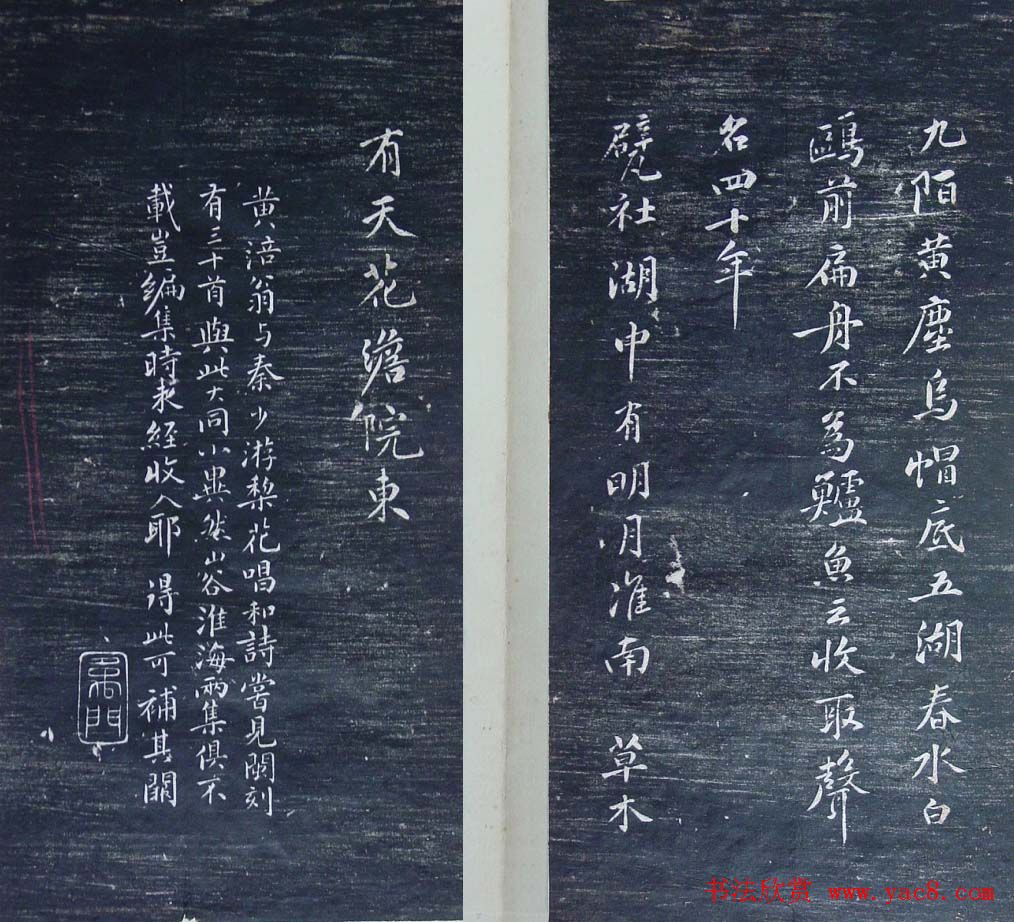 九陌黄塵烏帽底五湖春水白
鷗前扁舟不為鱸魚去收取聲
名四十年
甓社湖中有明月淮南 草木
有天花滄院東
黄涪翁与秦少游梨花唱和詩嘗見閣刻
有三十首與此大同小異然山谷淮海兩集俱不
載豈編集時未經收入耶 得此可補其闕
門
书法欣赏 www.yac8.com